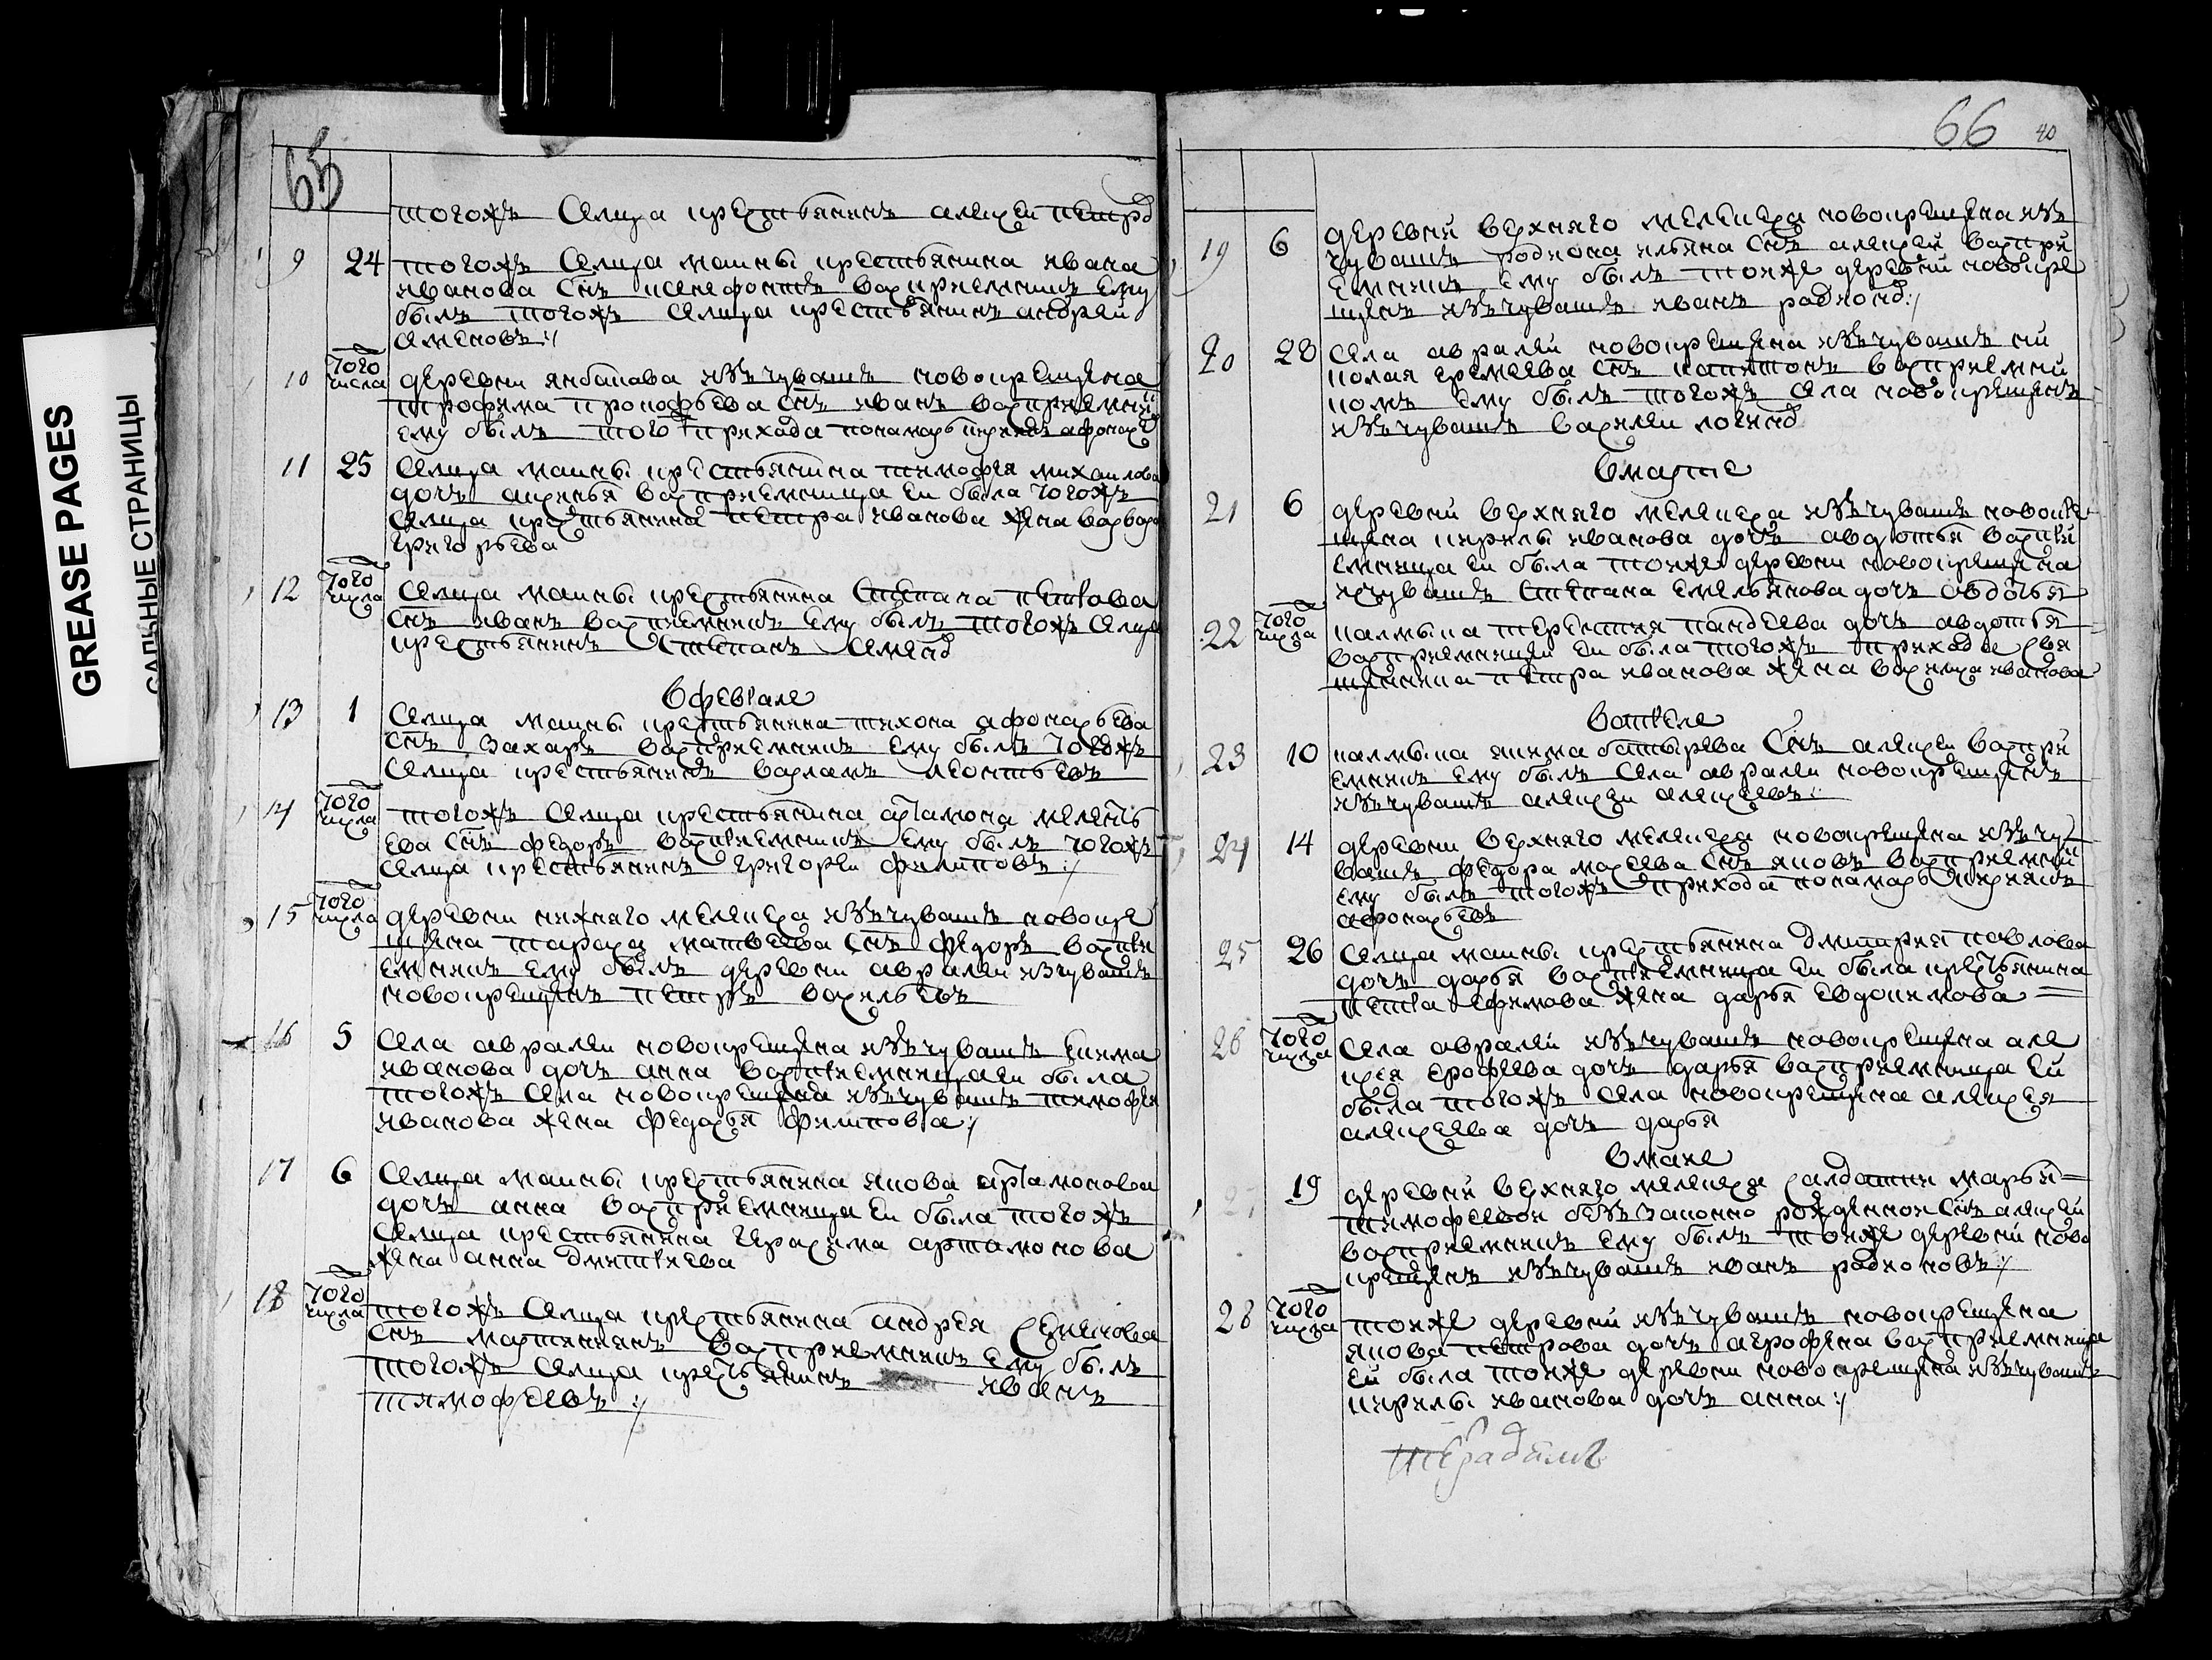 GREASE PAGES
САЛЬНЫЕ СТРАНИЦЫ
65
тогожъ селца крестьянинъ алеѯей петро
9 24 тогожъ селца маины крестьянина ивана
иванова снъ ксенофонтъ восприемникъ ему
былъ тогожъ селца крестьянинъ андрей
семеновъ:/
10 того числа деревни янбапава изъ чувашъ новокрещена
трофима прокофьева снъ иванъ восприемни
ему былъ того прихода понамарь
11 25 селца маины крестьянина тимофея михаилова
дочь аксинья восприемница ей была тогожъ
селца крестьянина петра иванова жена варвара
григорьева
12 того числа селца маины крестьянина степана петрова
снъ иванъ восприемникъ ему былъ тогожъ селца
крестьянинъ степанъ семено
в феврале
13 1 селца маины крестьянина тихона афонасьева
снъ захаръ восприемникъ ему былъ тогожъ
селца крестьянинъ варламъ леонтьевъ
14 того числа тогожъ селца крестьянина артамона меленть
ева снъ федоръ восприемникъ ему былъ тогожъ
селца крестьянинъ григорей филиповъ:/
15 того числа деревни нижняго мелекеса изъ чувашъ новокре
щена тараса матвеева снъ федоръ воспри
емникъ ему былъ деревни аврали изчувашъ
новокрещенъ петръ васильевъ
16 5 села аврали новокрещена изъ чувашъ екима
иванова дочь анна восприемница ей была
тогожъ села новокрещена изъ чувашъ тимофея
иванова жена федосья филипова:/
17 6 селца маины крестьянина якова артамонова
дочь анна восприемница ей была тогожъ
селца крестьянина герасима артамонова
жена анна дмитриева
18 того числа тогожъ селца крестьянина андрея семенова
снъ мартинианъ восприемникъ ему былъ
тогожъ селца крестьянинъ иванъ
тимофеевъ:/
66 40
19 6 деревни верхняго мелекеса новокрещена изъ
чувашъ родиона ильина снъ алеѯей воспри
емникъ ему былъ тояже деревни новокре
щенъ изъ чувашъ иванъ родионо:/
20 28 села аврали новокрещена изъ чувашъ ни
колая еремеева снъ капитонъ восприемни
комъ ему былъ тогожъ села новокрещенъ
изъ чувашъ василей логино
в марте
21 6 деревни верхняго мелекеса изъ чувашъ новокре
щена кирилы иванова дочь авдотья воспри
емница ей была тояже деревни новокрещена
исчувашъ степана емельянова дочь овдотья
22 того числа калмыка терентия пандеева дочь авдотья
восприемница ей была тогожъ прихода свя
щенника петра иванова жена василиса иванова
в апреле
23 10 калмыка якима батырева снъ алеѯей воспри
емникъ ему былъ села аврали новокрещенъ
изъ чувашъ алеѯей алеѯеевъ:
24 14 деревни верхняго мелекеса новокрещена изъ чу
вашъ федора мосеева снъ яковъ восприемни
ему былъ тогожъ прихода понамарь
афонасьевъ
25 26 селца маины крестьянина дмитрия павлова
дочь дарья восприемница ей была крестьянина
петра ефимова жена дарья евдокимова
26 того числа села аврали изъ чувашъ новокрещена але
ѯея ерофеева дочь дарья восприемница ей
была тогожъ села новокрещена алеѯея
алеѯеева дочь дарья
в маие
27 19 деревни верхняго мелекеса салдатки марьи
тимофеевой безъ законно рожденной снъ алеѯей
восприемникъ ему былъ тояже деревни ново
крещенъ изъ чувашъ иванъ родионовъ:/
28 того числа тояже деревни изъ чувашъ новокрещена
якова петрова дочь агрофена восприемница
ей была тояже деревни новокрещена изъ чувашъ
кирилы иванова дочь анна:/